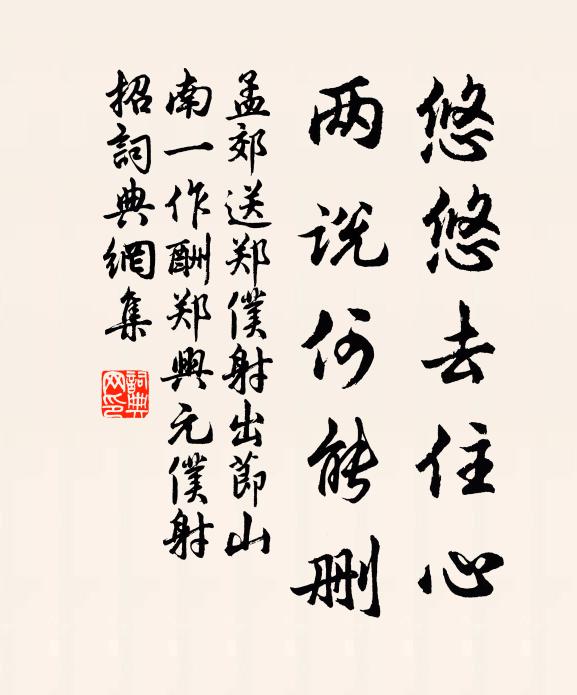 悠悠去住心
两说何能删
孟郊送郑僕射出節山
南一作酬郑興元僕射
招詞典網集
詞典
网印